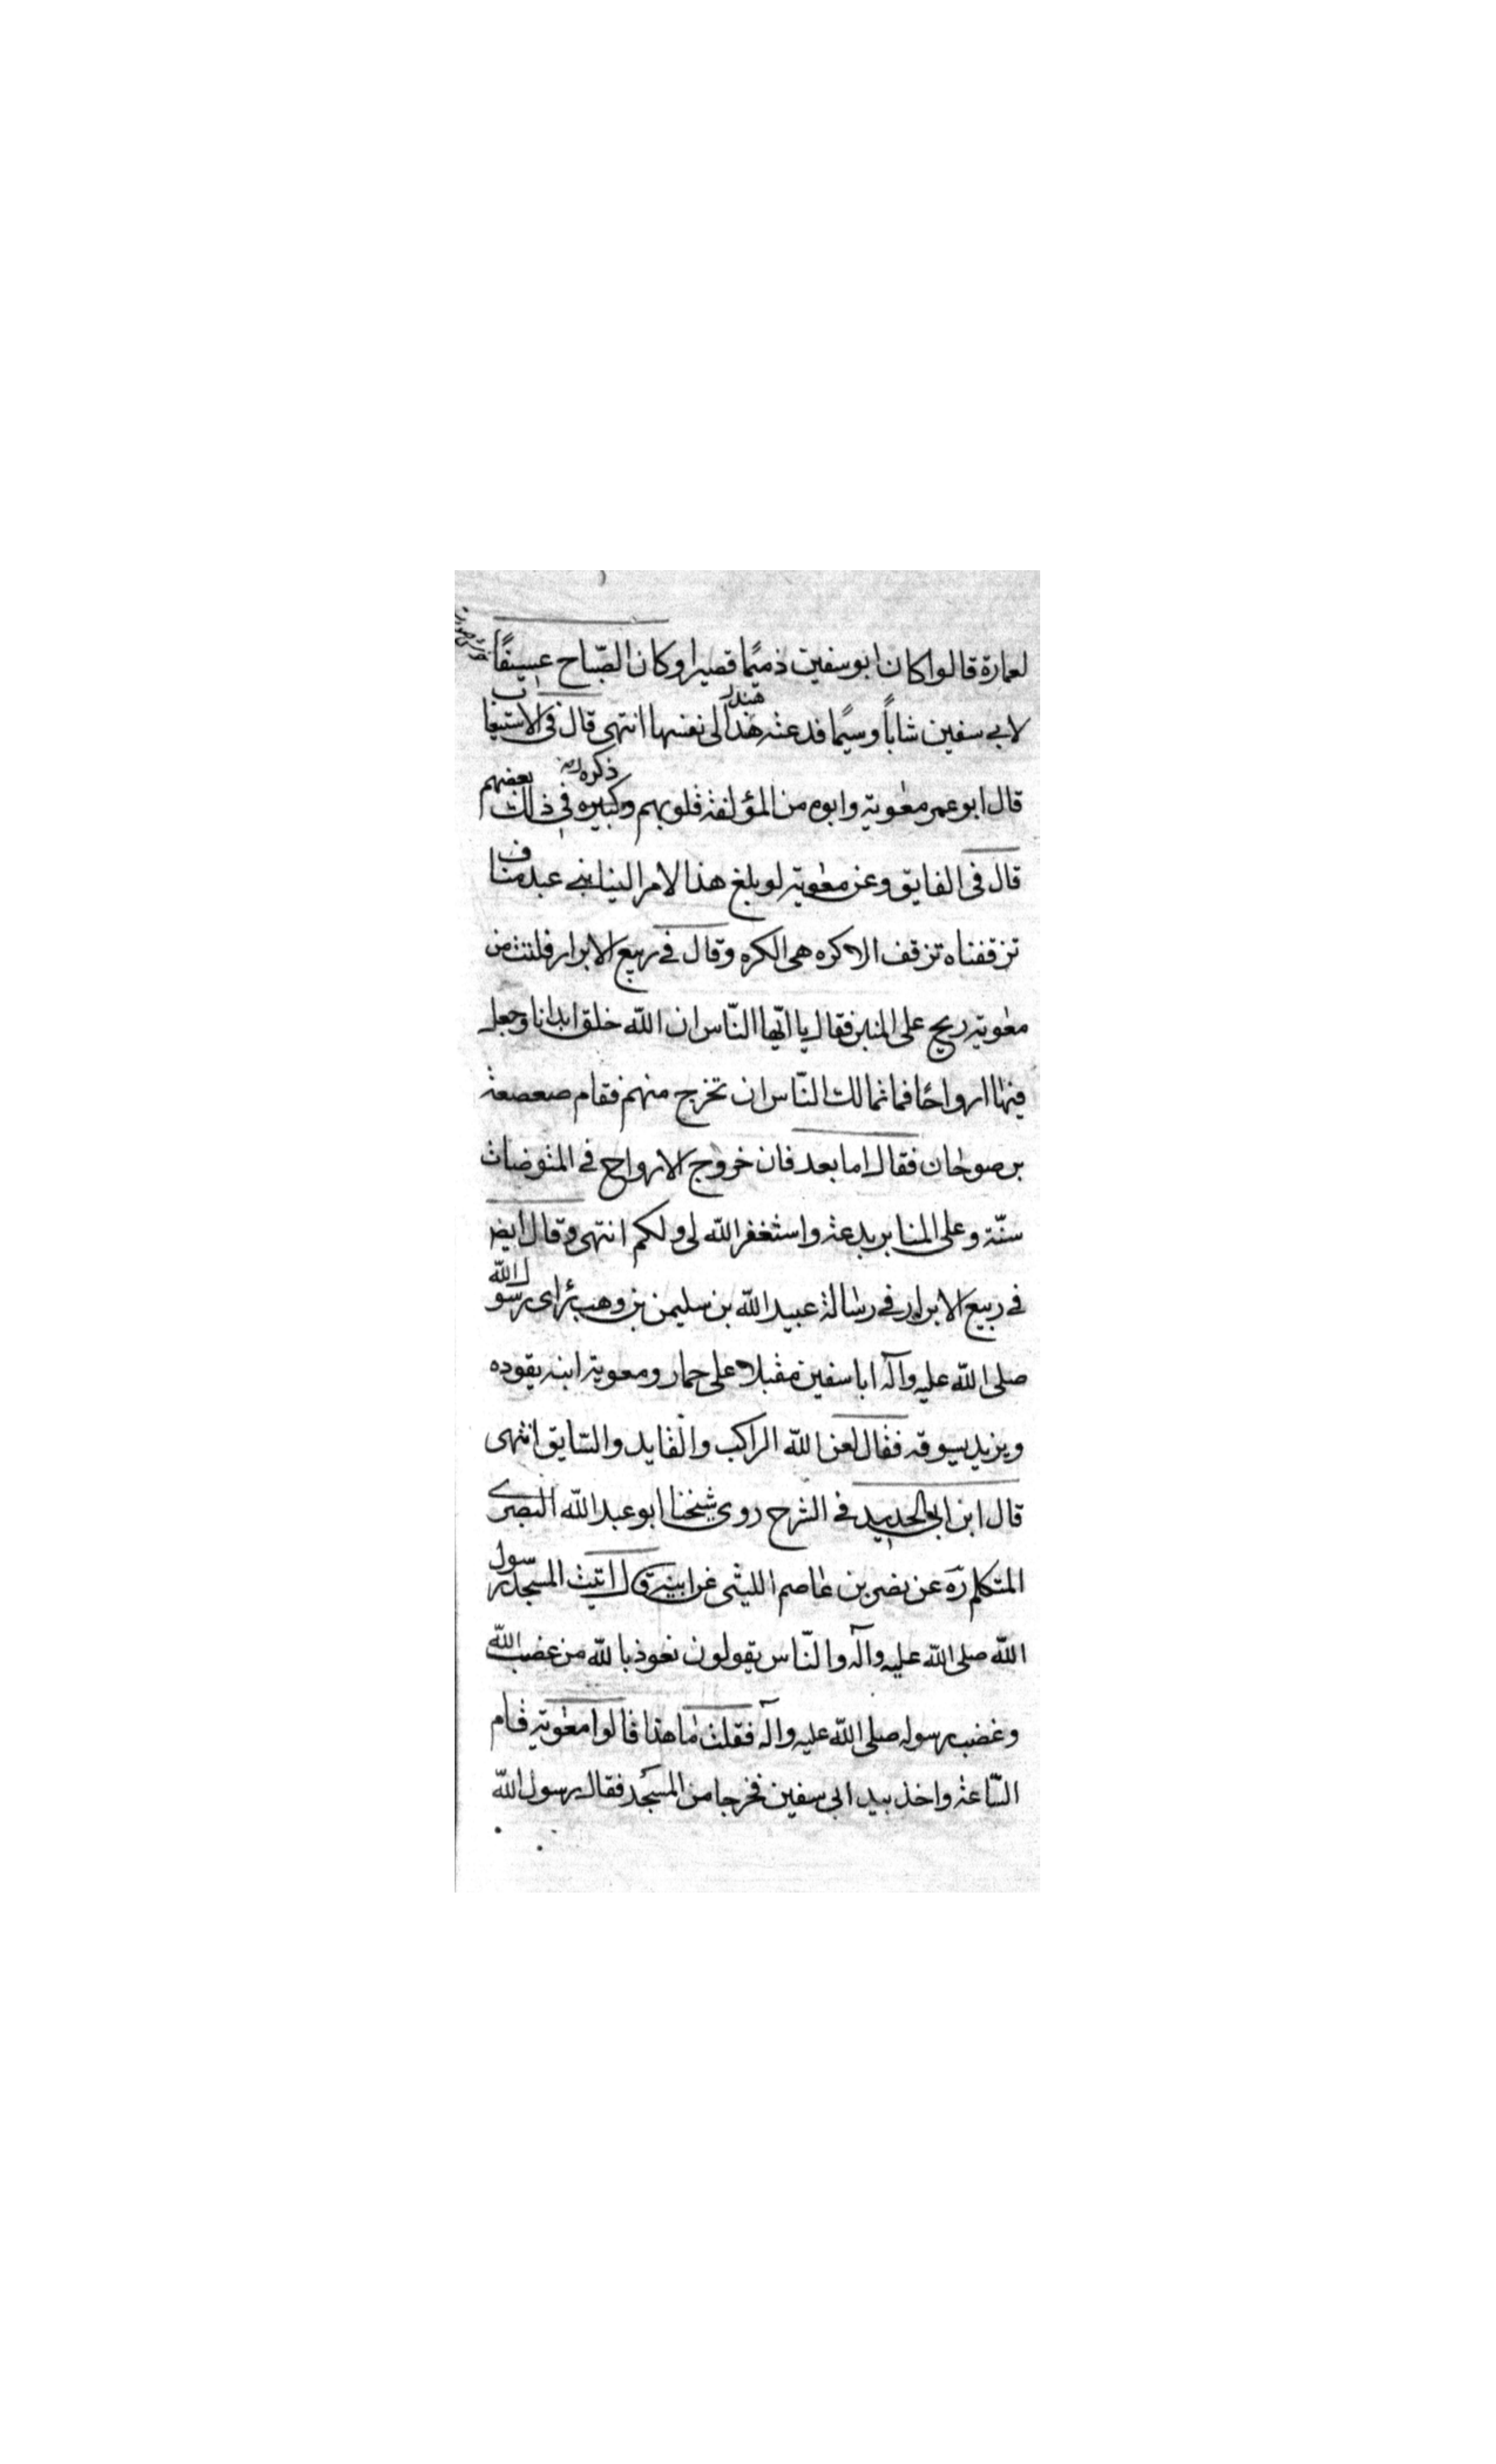 لعمارة قالوا كان ابو سفين ذميمًا قصيرا وكان الصّباح عسيفًا
لابي سفين شاباً وسيمًا فدعته هند الى نفسها انتهى قال في الاستيعاب
قال ابو عمر معوية وابوه من المؤلفة قلوبهم ذكره في ذلك بعضهم
قال في الفايق وعن معوية لو بلغ هذا الامر الينا بني عبد مناف
تزقفناه تزقف الاكره هى الكره وقال في ربيع الابرار فلتت من
معوية ريح على المنبر فقال يا ايّها النّاس ان اللّه خلق ابدانا وجعل
فيها ارواحًا فما تمالك النّاس ان تخرج منهم فقام صعصعة
بن صوحان فقال اما بعد فان خروج الارواح في المتوضات
سنّة وعلى المنابر بدعة واستغفر اللّه لي ولكم انتهى وقال ايض
في ربيع الابرار في رسالة عبيد اللّه بن سليمن بن وهب راى رسول اللّه
صلى اللّه عليه وآله ابا سفين مقبلا على حمار ومعوية ابنه يقوده
ويزيد يسوقه فقال لعن اللّه الراكب والقايد والسّايق انتهى
قال ابن ابي الحديد في الشرح روى شيخنا ابو عبد اللّه البصرى
المتكلم ره عن نصر بن عاصم الليثى عن ابيه قال اتيت المسجد رسول
اللّه صلى اللّه عليه وآله والنّاس يقولون نعوذ باللّه من غضب اللّه
وغضب رسوله صلى اللّه عليه وآله فقلت ما هذا قالوا معوية قام
السّاعة واخذ بيد ابى سفين فخرجا من المسجد فقال رسول اللّه